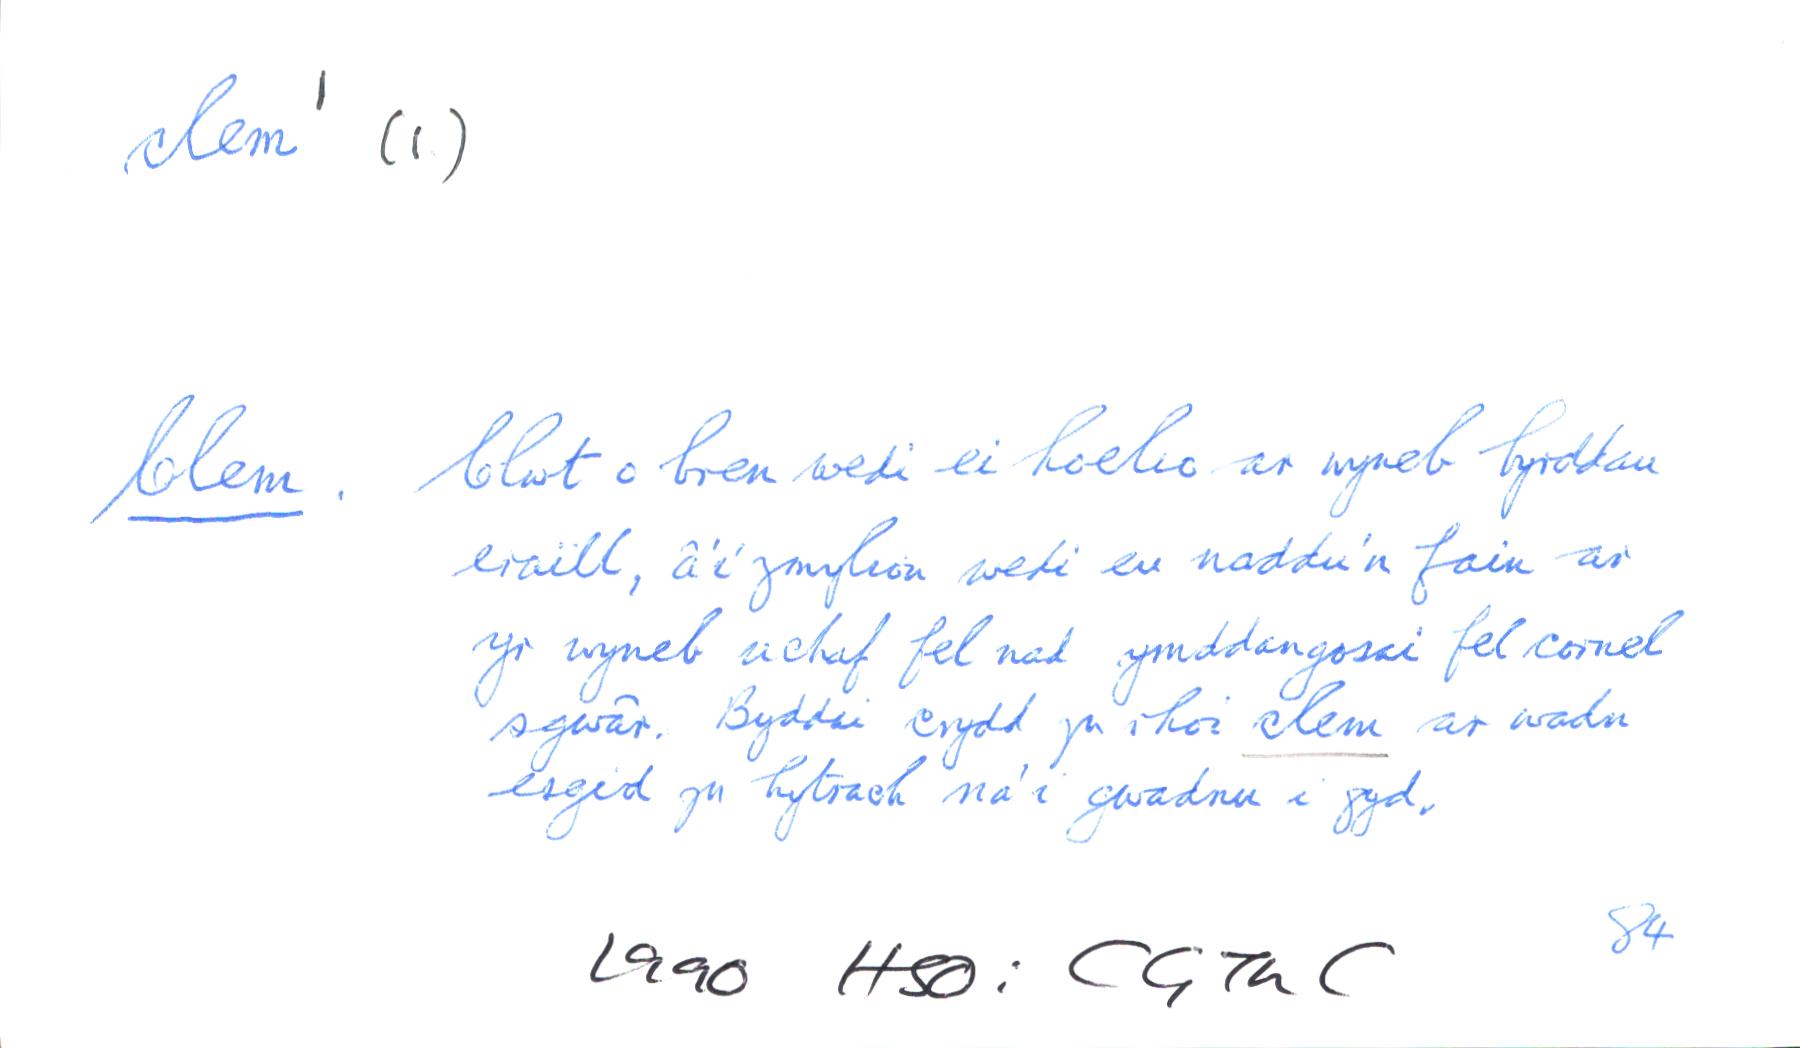 clem¹ (1.)
Clem. Clwt o bren wedi ei hoelio ar wyneb byrddau
eraill, â'i ymylion wedi eu naddu'n fain ar
yr wyneb uchaf fel nad ymddangosai fel cornel
sgwâr. Byddai crydd yn rhoi clem ar wadn
esgid yn hytrach na'i gwadnu i gyd.
84
1990 HSO: CGThC